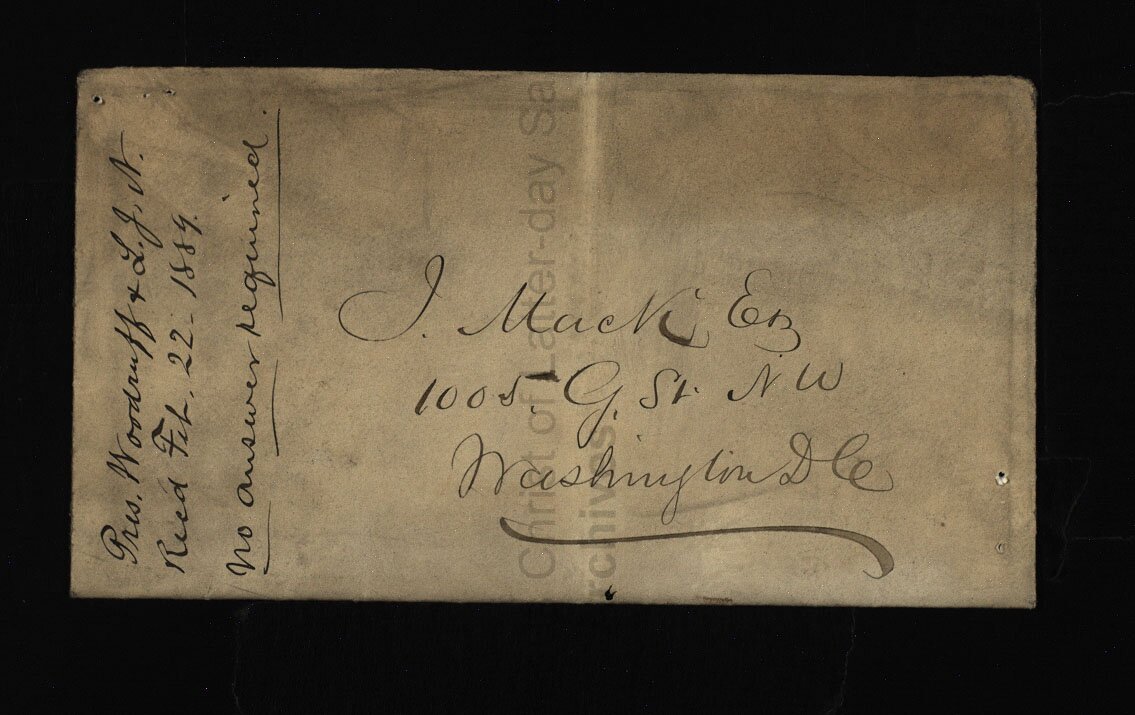 Pres. Woodruff & L. J. N.
Recd Feb. 22 - 1889.
No answer required.
J. Mack Esq
1005 G. St. N W
Washington D C
Christ of Latter-day Sa
rchives